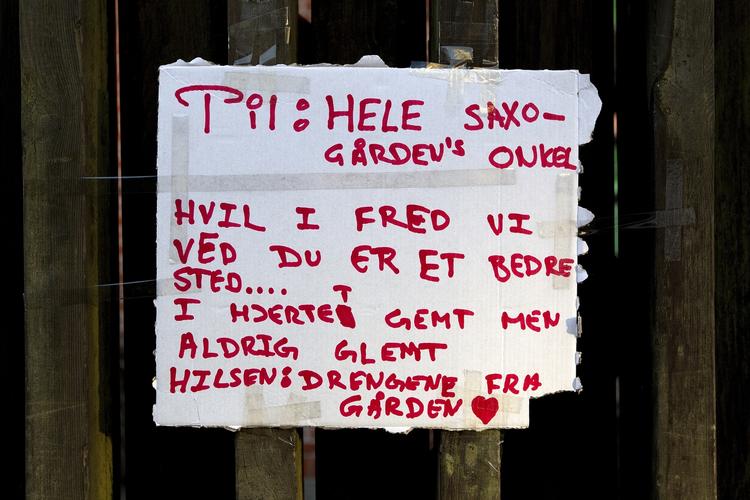 Til: HELE SAXO-
GÅRDEN'S ONKEL
HVIL I FRED VI
VED DU ER ET BEDRE
STED....
I HJERTET GEMT MEN
ALDRIG GLEMT
HILSEN: DRENGENE FRA
GÅRDEN ♥